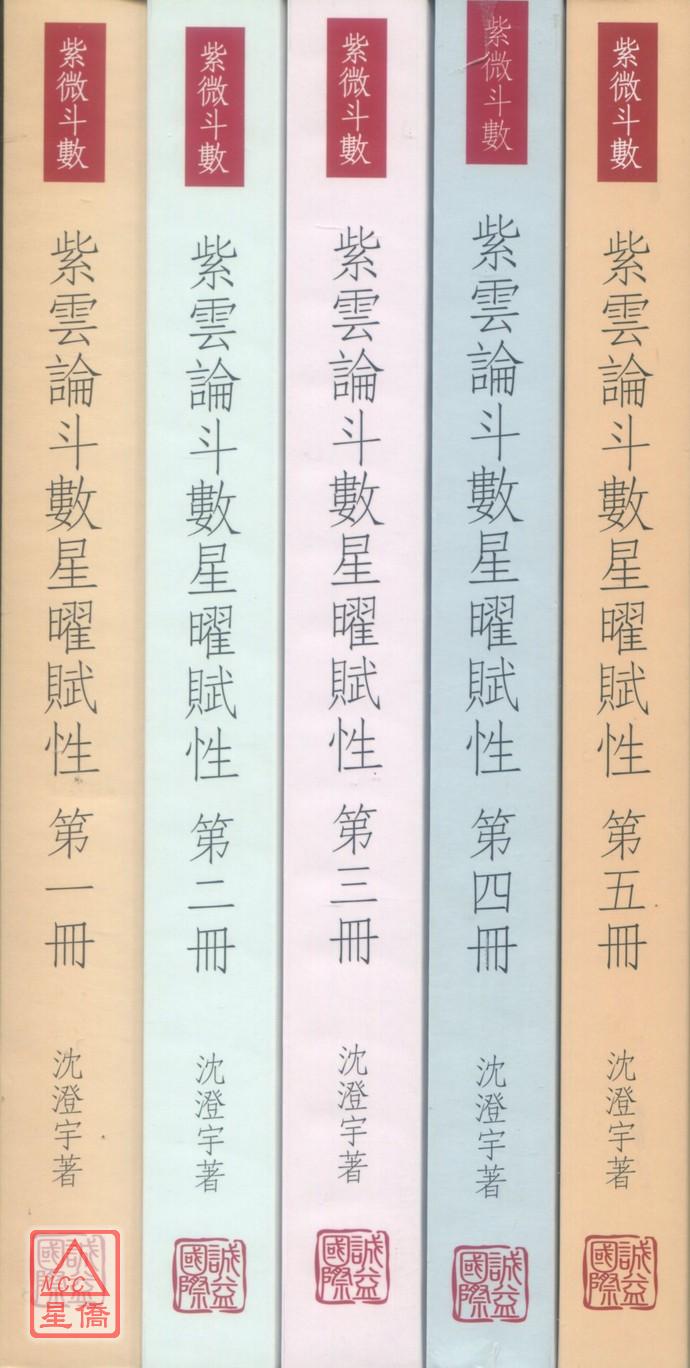 紫微斗數
紫雲論斗數星曜賦性 第一冊
沈澄宇著
誠益國際
NCC
星僑
紫微斗數
紫雲論斗數星曜賦性 第二冊
沈澄宇著
誠益國際
紫微斗數
紫雲論斗數星曜賦性 第三冊
沈澄宇著
誠益國際
紫微斗數
紫雲論斗數星曜賦性 第四冊
沈澄宇著
誠益國際
紫微斗數
紫雲論斗數星曜賦性 第五冊
沈澄宇著
誠益國際